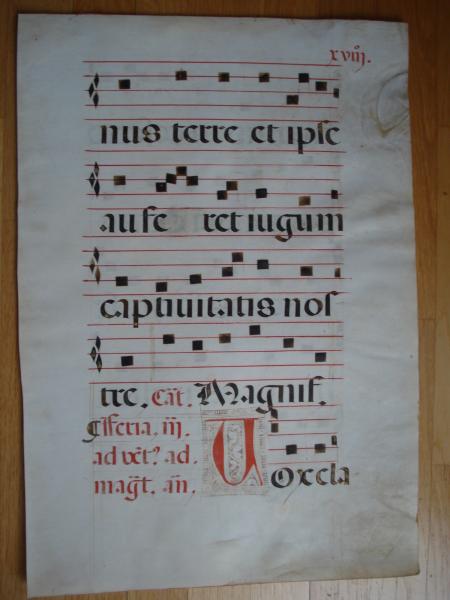 xviij.
nus terre et ipse
aufe ret iugum
captiuitatis nos
tre. Cāt. Magnif.
¶ feria. iij.
ad vēt? ad.
magt. añ. Voxcla